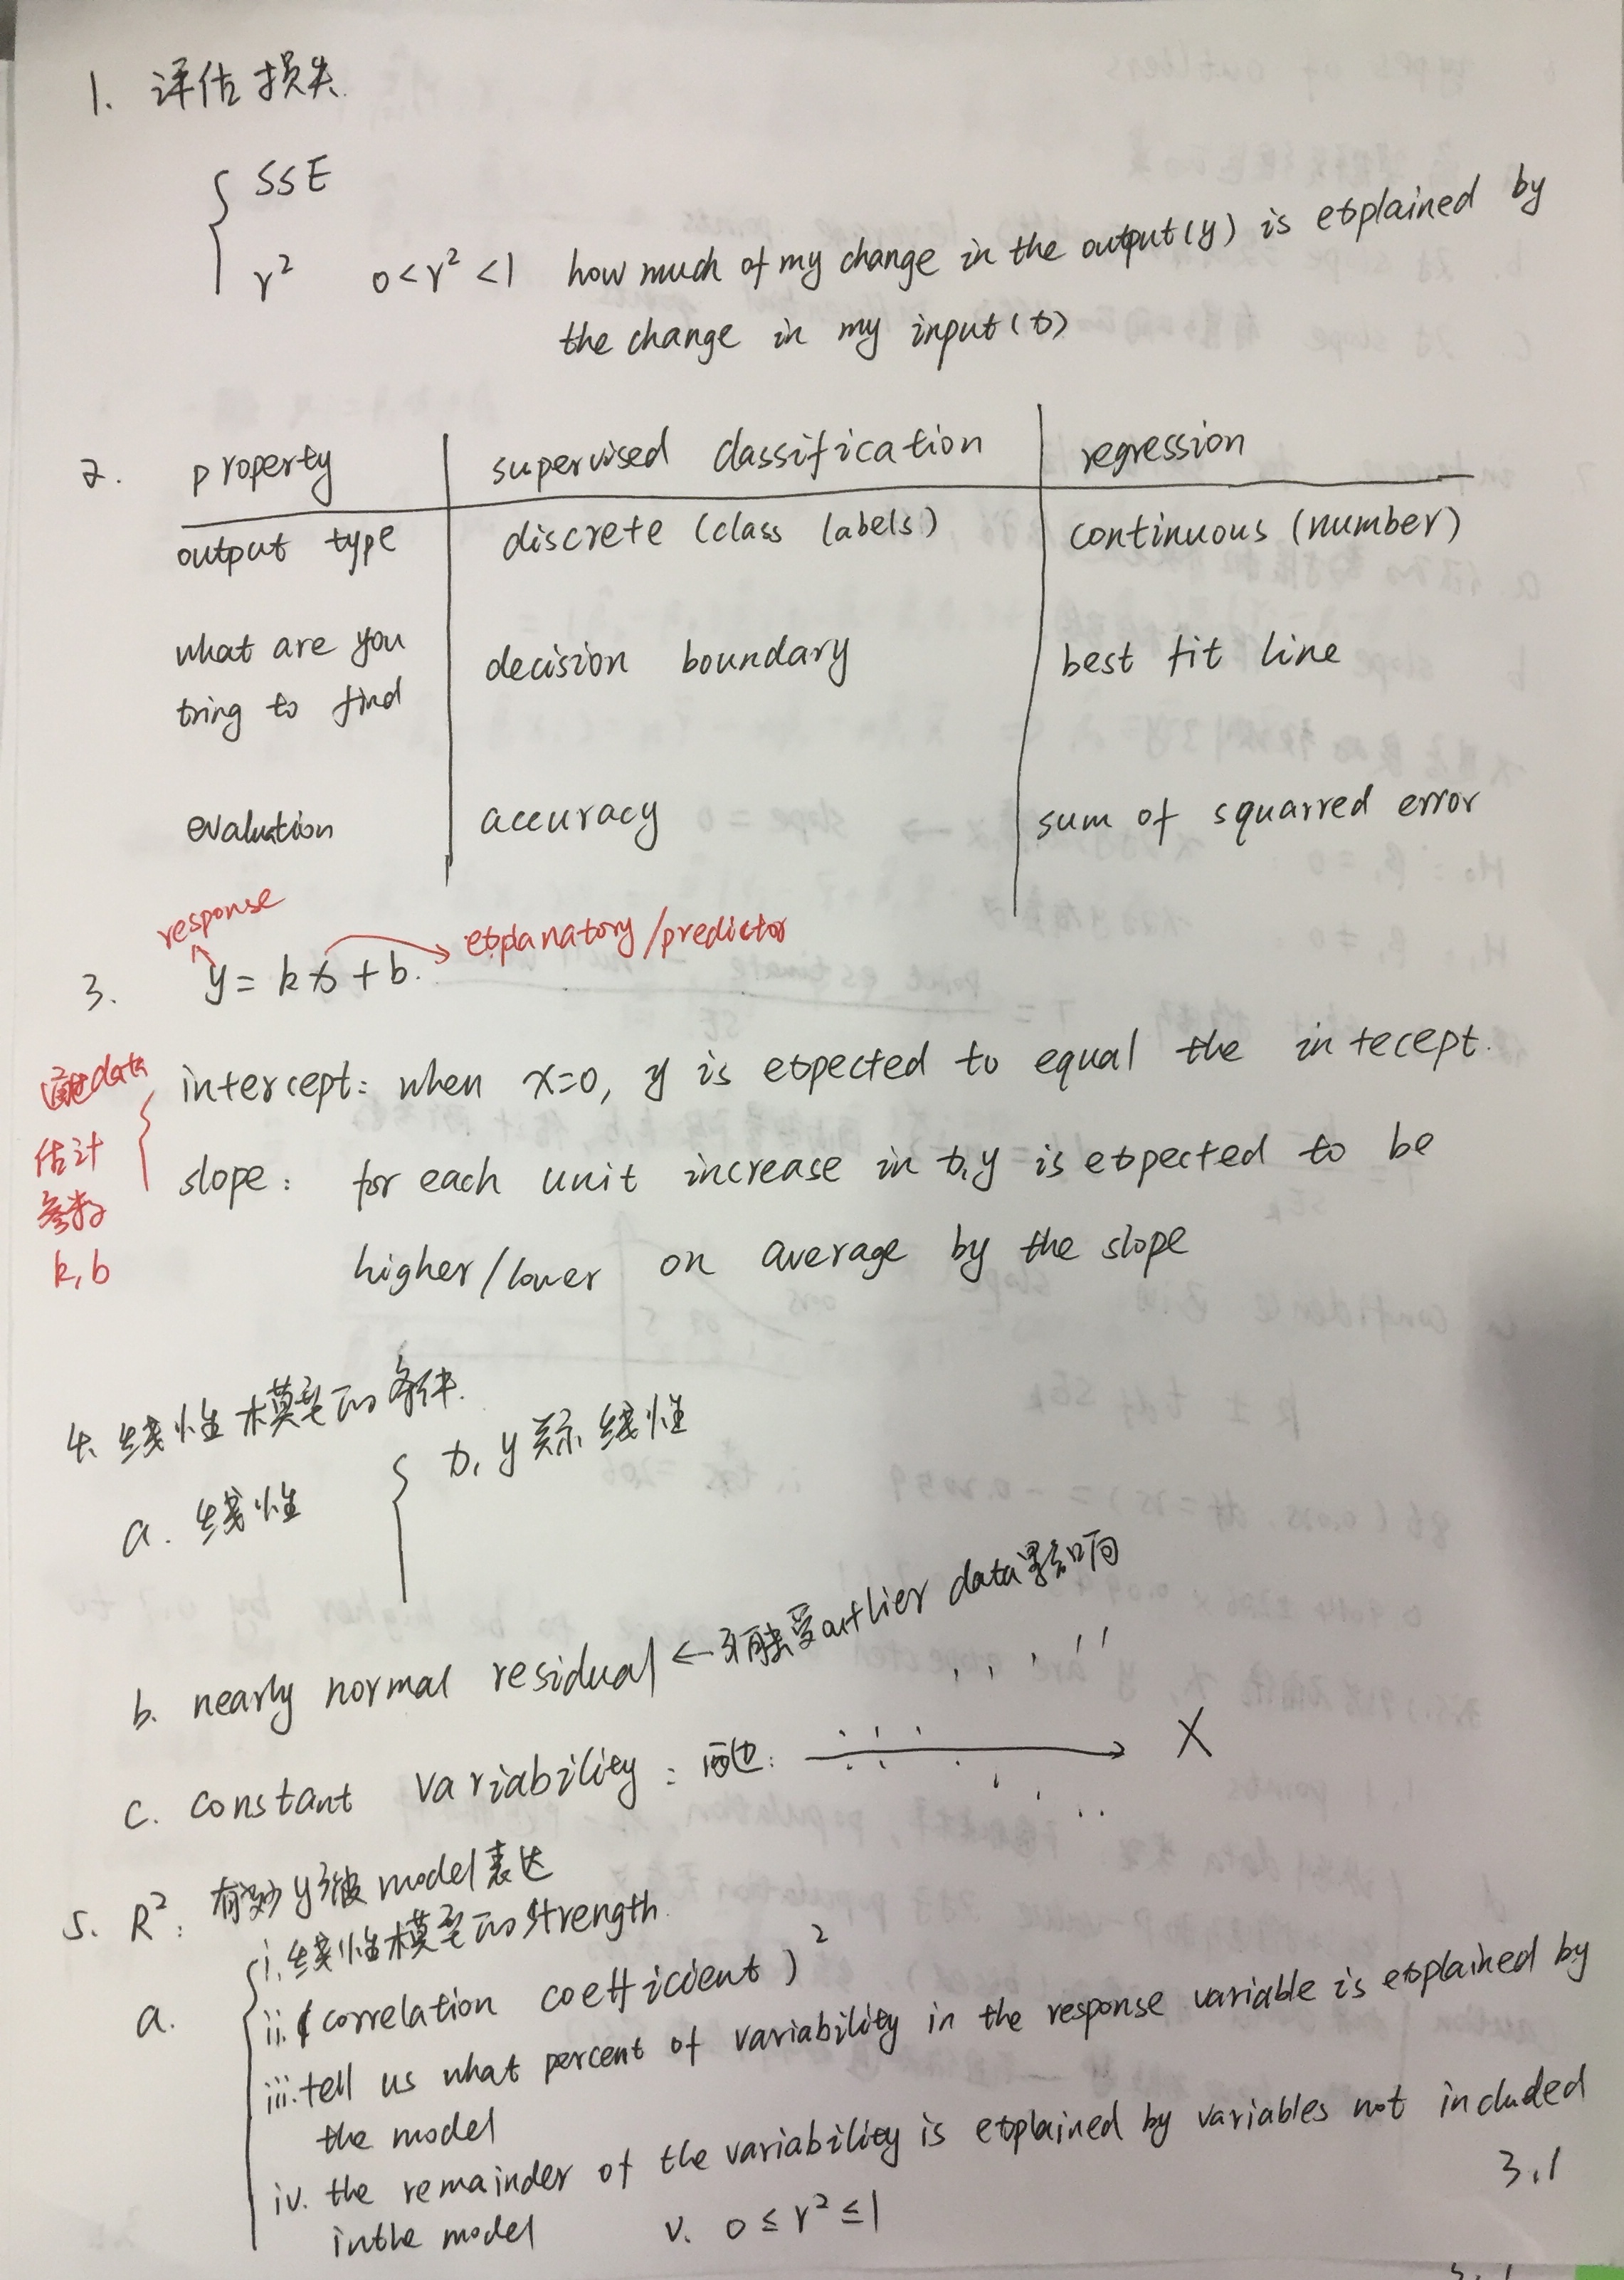 1. 评估损失
SSE
r² 0<r²<1 how much of my change in the output(y) is explained by
the change in my input(x)
2. property supervised classification regression
output type discrete (class labels) continuous (number)
what are you decision boundary best fit line
tring to find
evaluation accuracy sum of squarred error
response
explanatory/predictor
3. y = kx+b.
通过data
估计
参数
k,b
intercept: when x=0, y is expected to equal the intecept.
slope: for each unit increase in x,y is expected to be
higher/lower on average by the slope
4. 线性模型的条件.
a. 线性 x, y关系线性
b. nearly normal residual ← 可能受outlier data影响
c. constant variability: 画边: X
5. R²: 有多少y被model表达
a.
i. 线性模型的strength
ii. (correlation coefficient)²
iii. tell us what percent of variability in the response variable is explained by
the model
iv. the remainder of the variability is explained by variables not included
in the model v. 0≤r²≤1
3.1